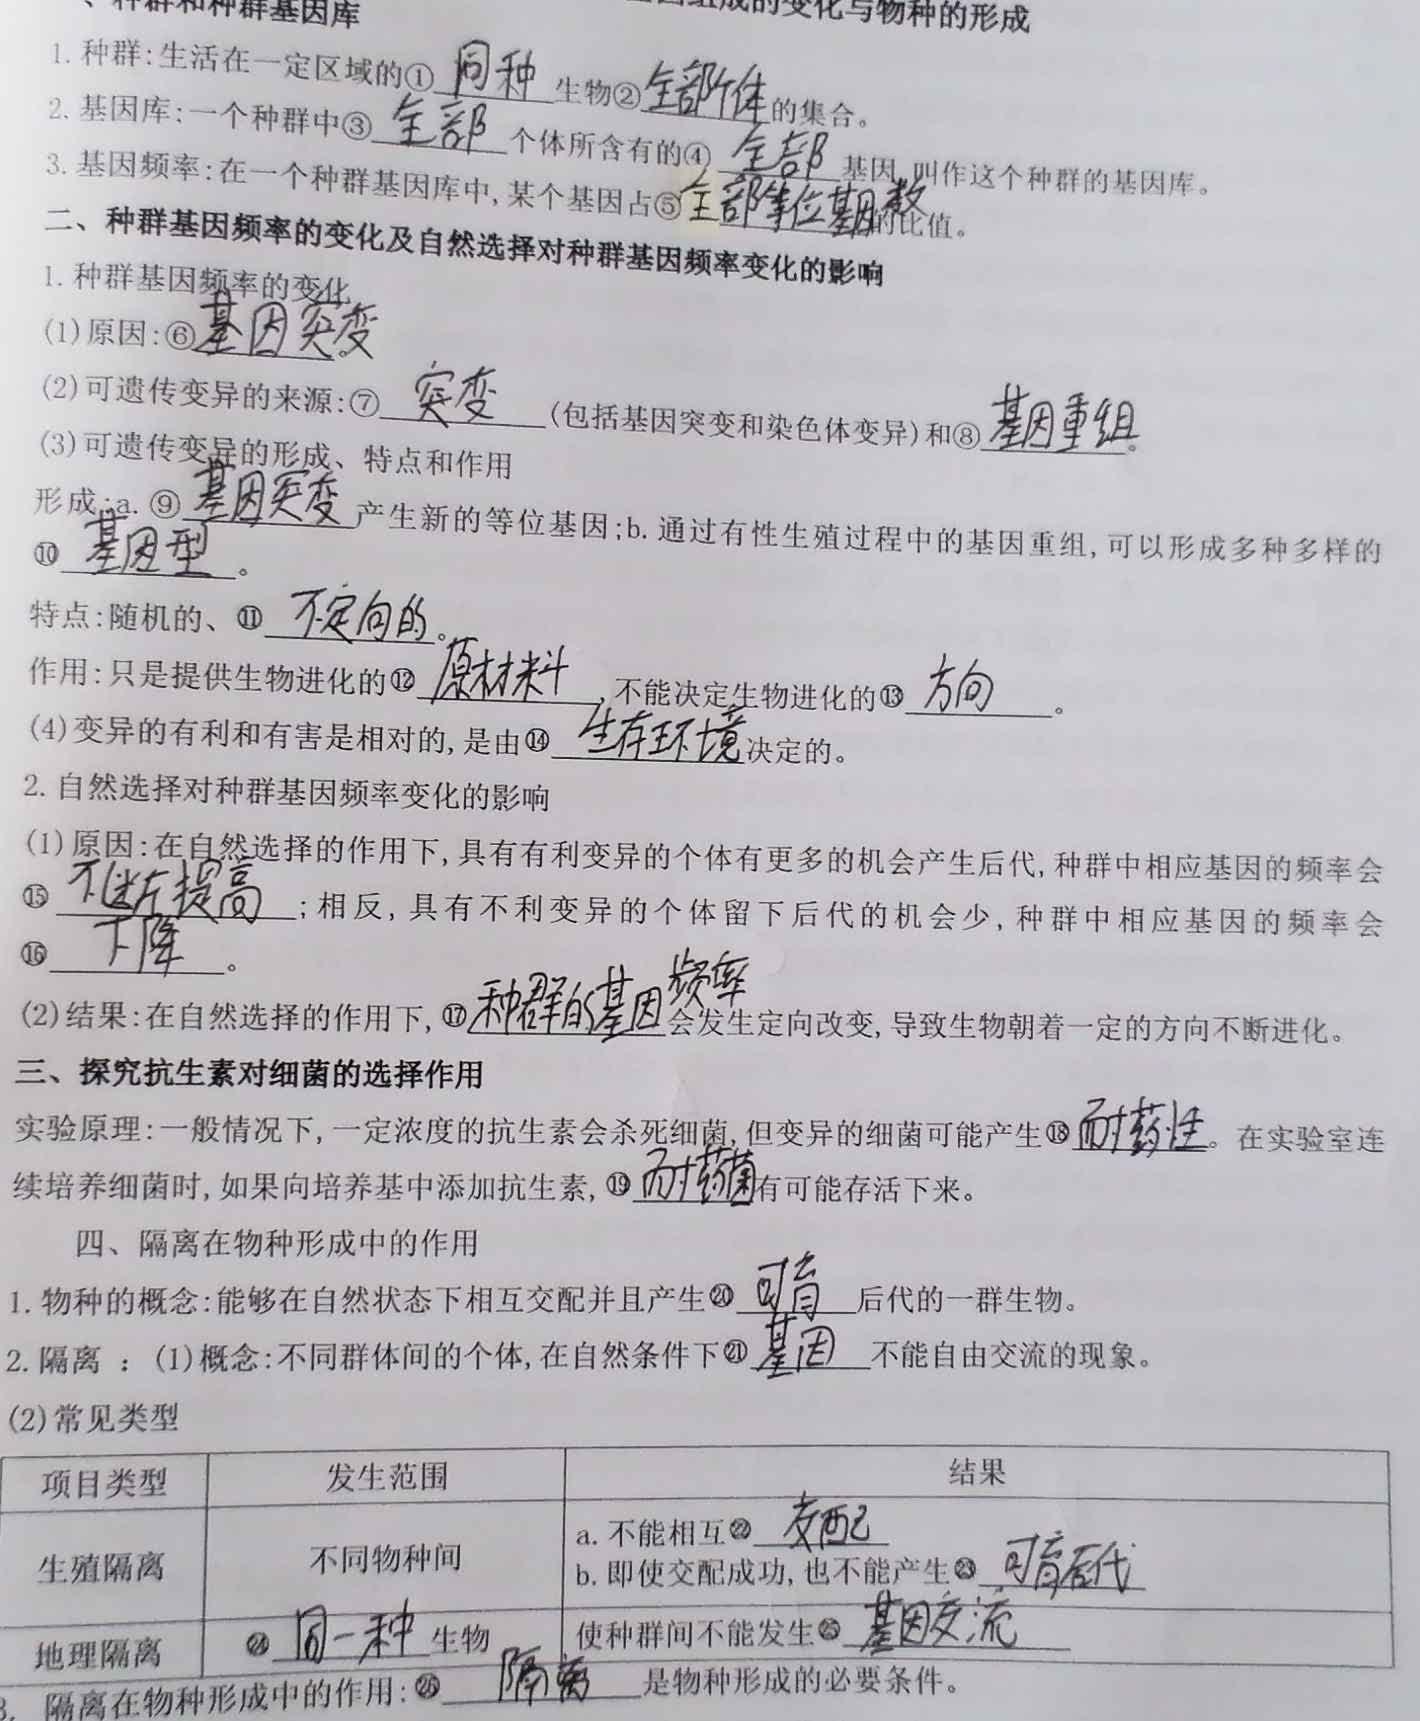 、种群和种群基因库
组成的变化与物种的形成
1. 种群:生活在一定区域的① 同种 生物②全部个体的集合。
2. 基因库:一个种群中③ 全部 个体所含有的④ 全部 基因,叫作这个种群的基因库。
3. 基因频率:在一个种群基因库中,某个基因占⑤全部等位基因数的比值。
二、种群基因频率的变化及自然选择对种群基因频率变化的影响
1. 种群基因频率的变化
(1)原因:⑥基因突变。
(2)可遗传变异的来源:⑦ 突变 (包括基因突变和染色体变异)和⑧基因重组。
(3)可遗传变异的形成、特点和作用
形成:a. ⑨ 基因突变 产生新的等位基因;b. 通过有性生殖过程中的基因重组,可以形成多种多样的
⑩ 基因型 。
特点:随机的、⑪ 不定向的。
作用:只是提供生物进化的⑫ 原材料 ,不能决定生物进化的⑬ 方向 。
(4)变异的有利和有害是相对的,是由⑭ 生存环境决定的。
2. 自然选择对种群基因频率变化的影响
(1)原因:在自然选择的作用下,具有有利变异的个体有更多的机会产生后代,种群中相应基因的频率会
⑮ 提高 ;相反,具有不利变异的个体留下后代的机会少,种群中相应基因的频率会
⑯ 下降 。
(2)结果:在自然选择的作用下,⑰种群的基因频率会发生定向改变,导致生物朝着一定的方向不断进化。
三、探究抗生素对细菌的选择作用
实验原理:一般情况下,一定浓度的抗生素会杀死细菌,但变异的细菌可能产生⑱耐药性。在实验室连
续培养细菌时,如果向培养基中添加抗生素,⑲耐药菌有可能存活下来。
四、隔离在物种形成中的作用
1. 物种的概念:能够在自然状态下相互交配并且产生⑳ 可育 后代的一群生物。
2. 隔离 :(1)概念:不同群体间的个体,在自然条件下㉑ 基因 不能自由交流的现象。
(2)常见类型
项目类型 发生范围 结果
生殖隔离 不同物种间 a. 不能相互㉒ 交配
b. 即使交配成功,也不能产生㉓ 可育后代
地理隔离 ㉔ 同一种 生物 使种群间不能发生㉕ 基因交流
3. 隔离在物种形成中的作用:㉖ 隔离 是物种形成的必要条件。